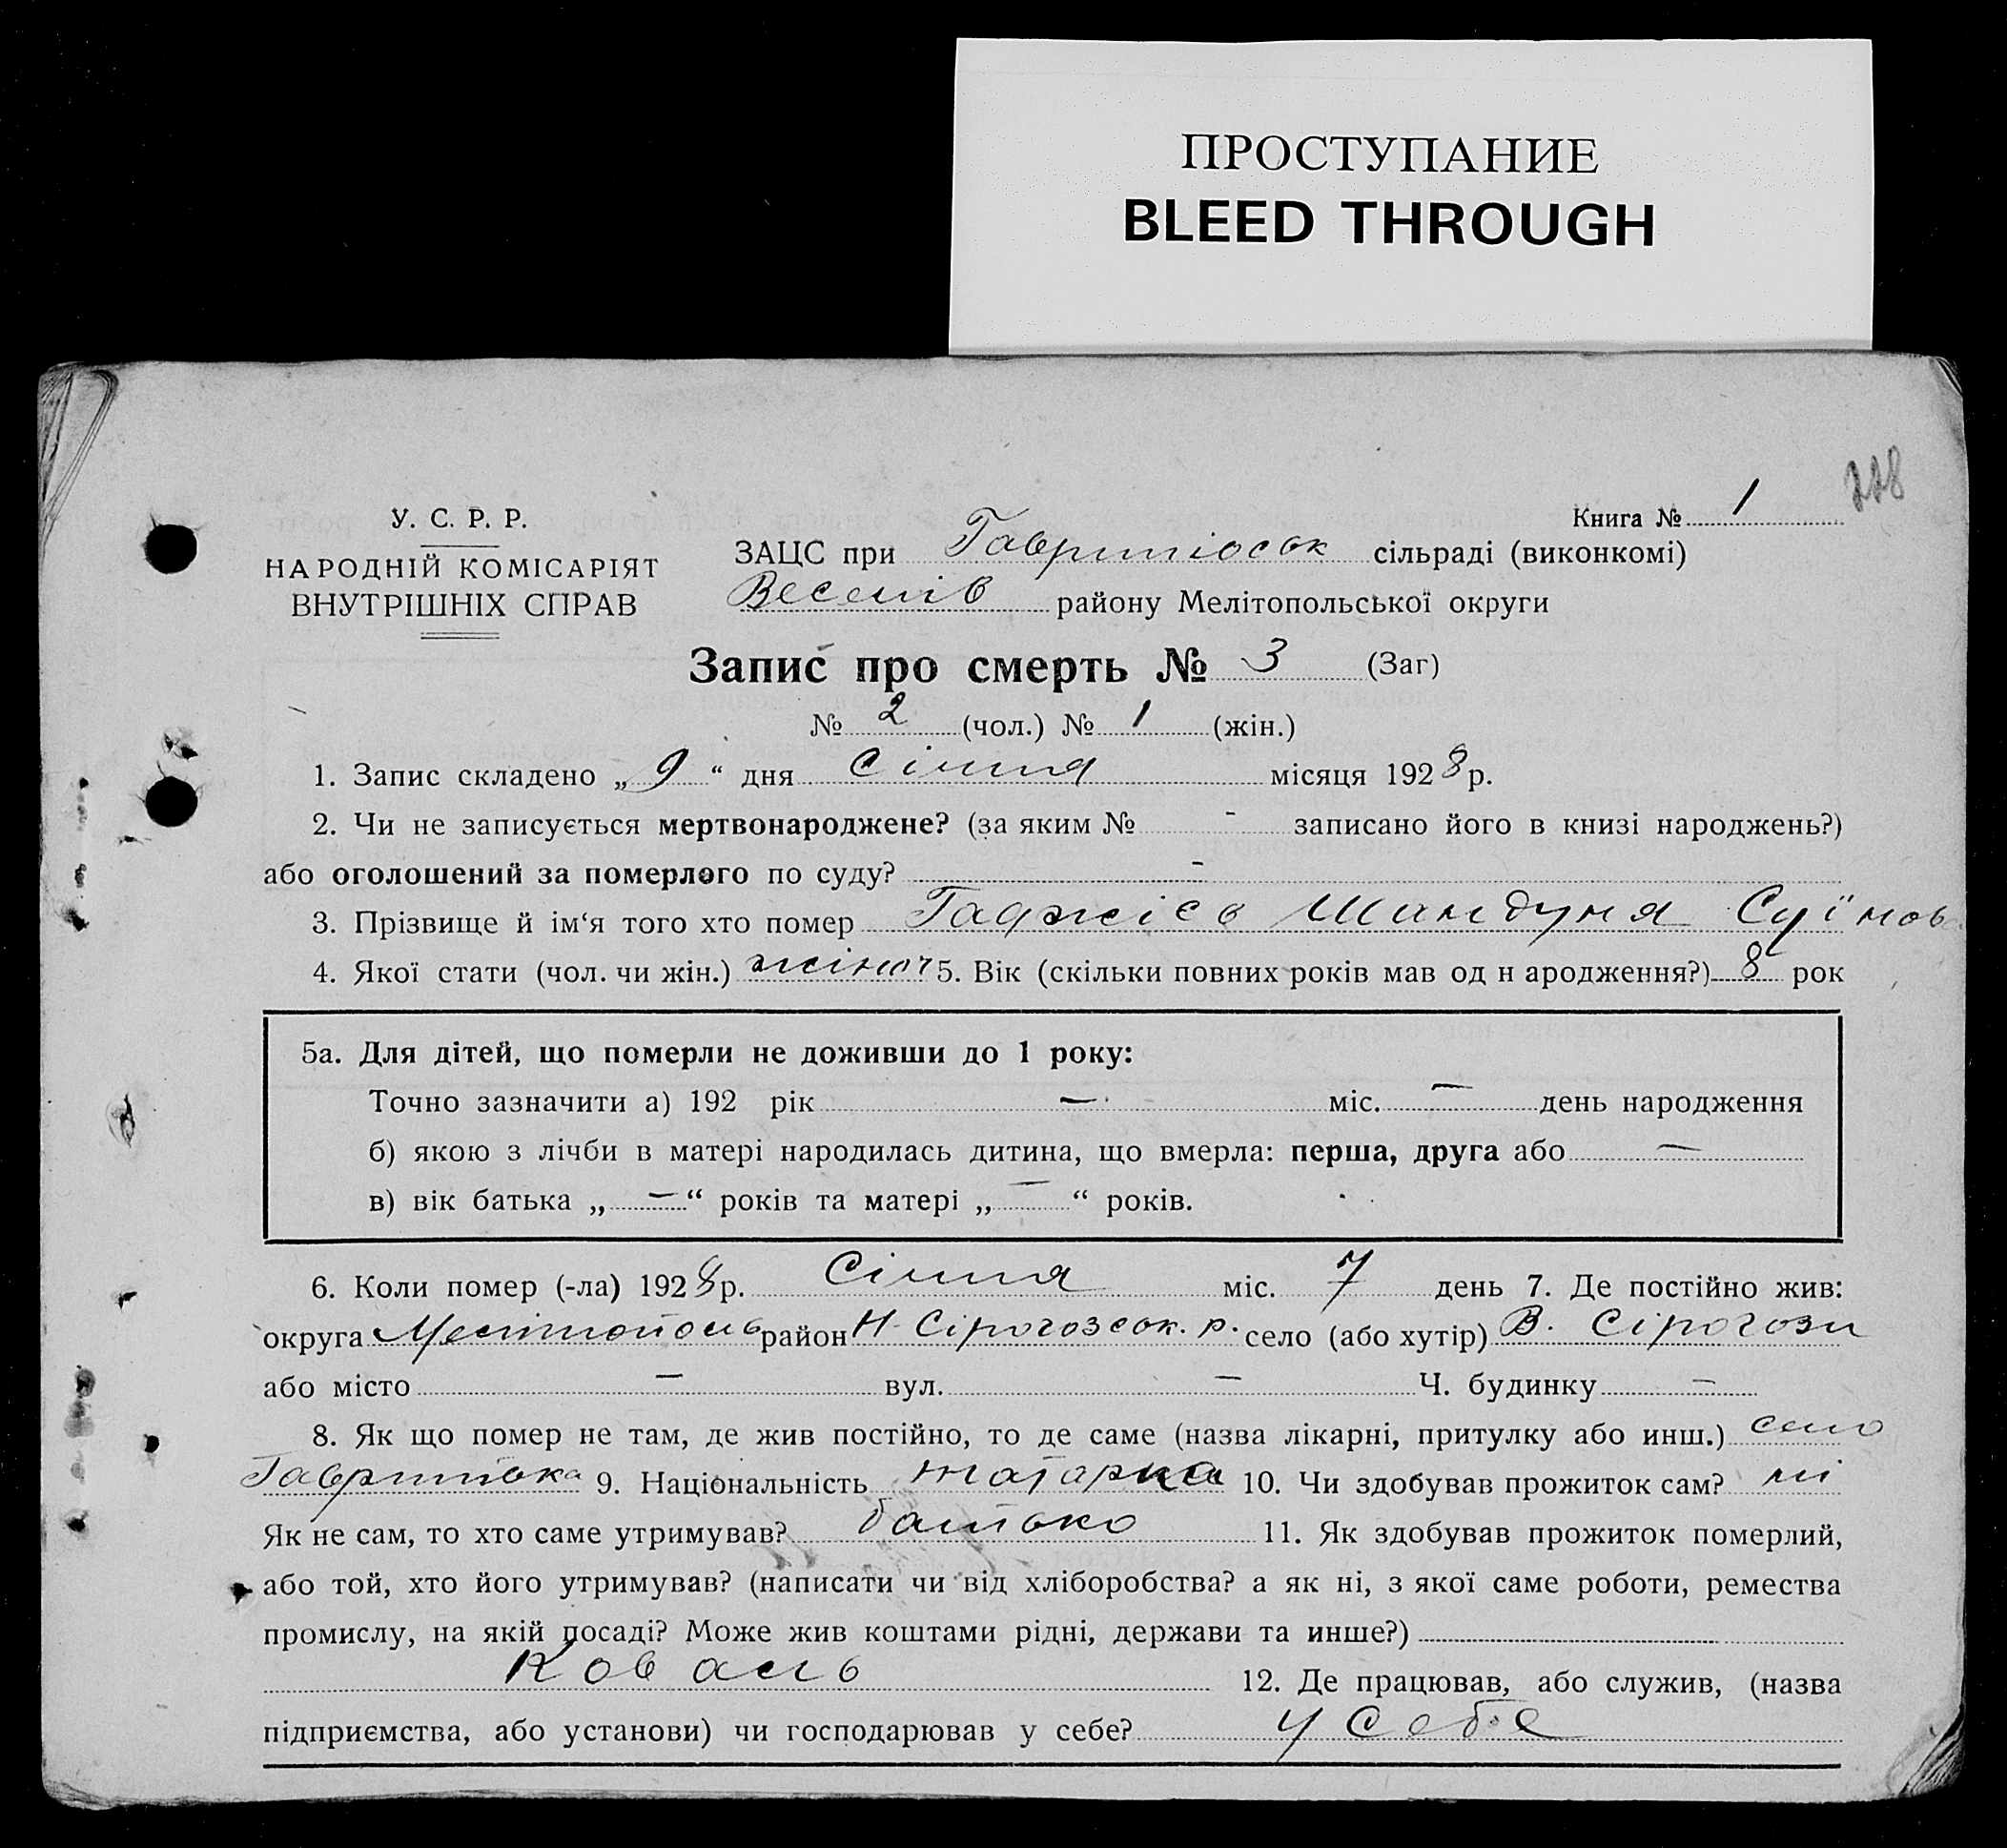 ПРОСТУПАНИЕ
BLEED THROUGH
228
У. С. Р. Р.
НАРОДНІЙ КОМІСАРІЯТ
ВНУТРІШНІХ СПРАВ
Книга № 1
ЗАЦС при Гаврилівськ сільраді (виконкомі)
Веселів району Мелітопольської округи
Запис про смерть № 3 (Заг)
№ 2 (чол.) № 1 (жін.)
1. Запис складено „ 9 “ дня Січня місяця 1928 р.
2. Чи не записується мертвонароджене? (за яким № - записано його в книзі народжень?)
або оголошений за померлого по суду? -
3. Прізвище й ім‘я того хто помер Гаджієв Шандуня Суїнов
4. Якої стати (чол. чи жін.) жіноч 5. Вік (скільки повних років мав од н ародження?) 8 рок
5а. Для дітей, що померли не доживши до 1 року:
Точно зазначити а) 192 рік — міс. — день народження
б) якою з лічби в матері народилась дитина, що вмерла: перша, друга або —
в) вік батька „ — “ років та матері „ — “ років.
6. Коли помер (-ла) 1928 р. Січня міс. 7 день 7. Де постійно жив:
округа Мелітополь район Н-Сірогозськ. р. село (або хутір) В. Сірогози
або місто — вул. — Ч. будинку —
8. Як що помер не там, де жив постійно, то де саме (назва лікарні, притулку або инш.) село
Гаврилівка 9. Національність татарка 10. Чи здобував прожиток сам? ні
Як не сам, то хто саме утримував? батько 11. Як здобував прожиток померлий,
або той, хто його утримував? (написати чи від хліборобства? а як ні, з якої саме роботи, ремества
промислу, на якій посаді? Може жив коштами рідні, держави та инше?)
Коваль 12. Де працював, або служив, (назва
підприємства, або установи) чи господарював у себе? у себе